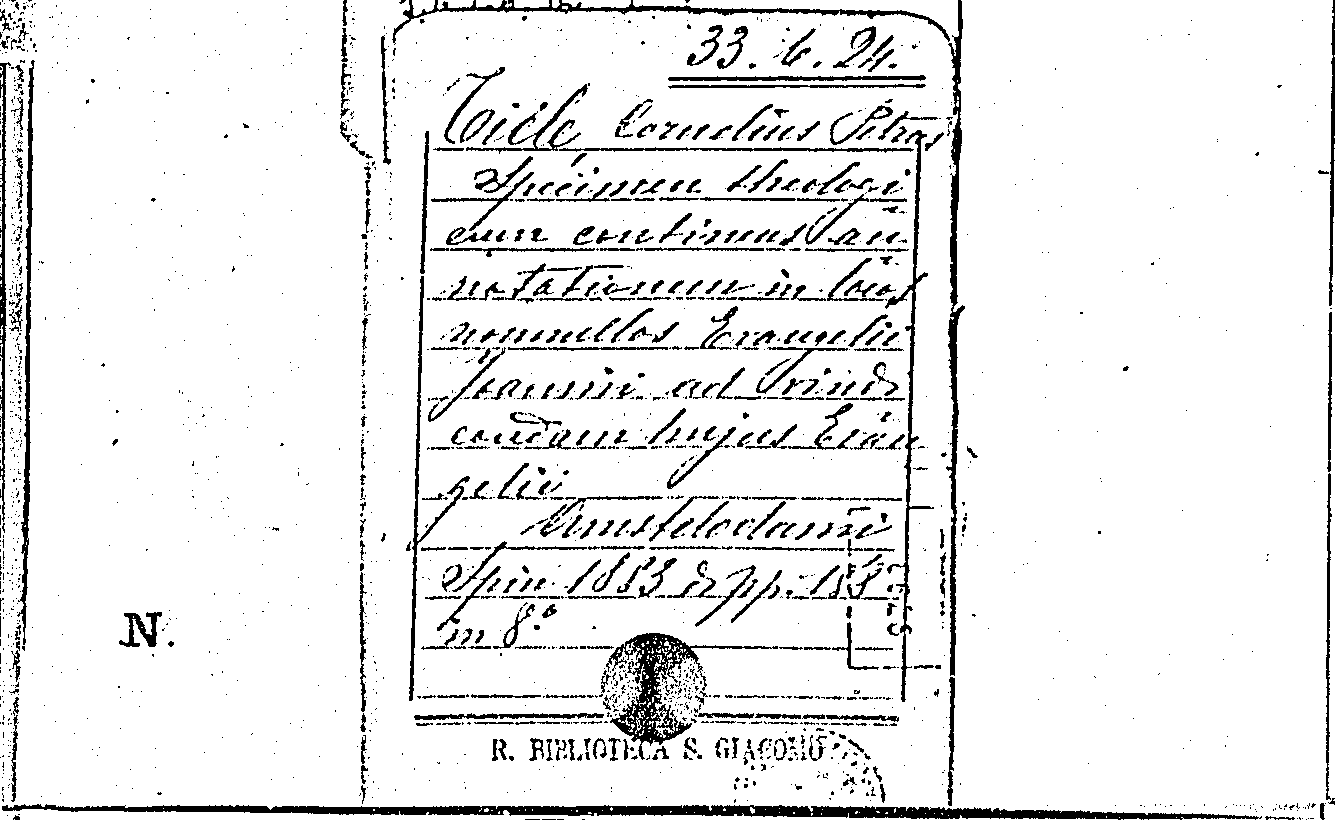 33. 6. 24.
Tiele Cornelius Petrus
Specimen theologi
cum continens an
notationem in locos
nonnullos Evangelii
Joannis ad vindi
candam hujus Evan
gelii
Amstelodami
Spin 1853 di pp. 158
in 8.°
N.
R. BIBLIOTECA S. GIACOMO